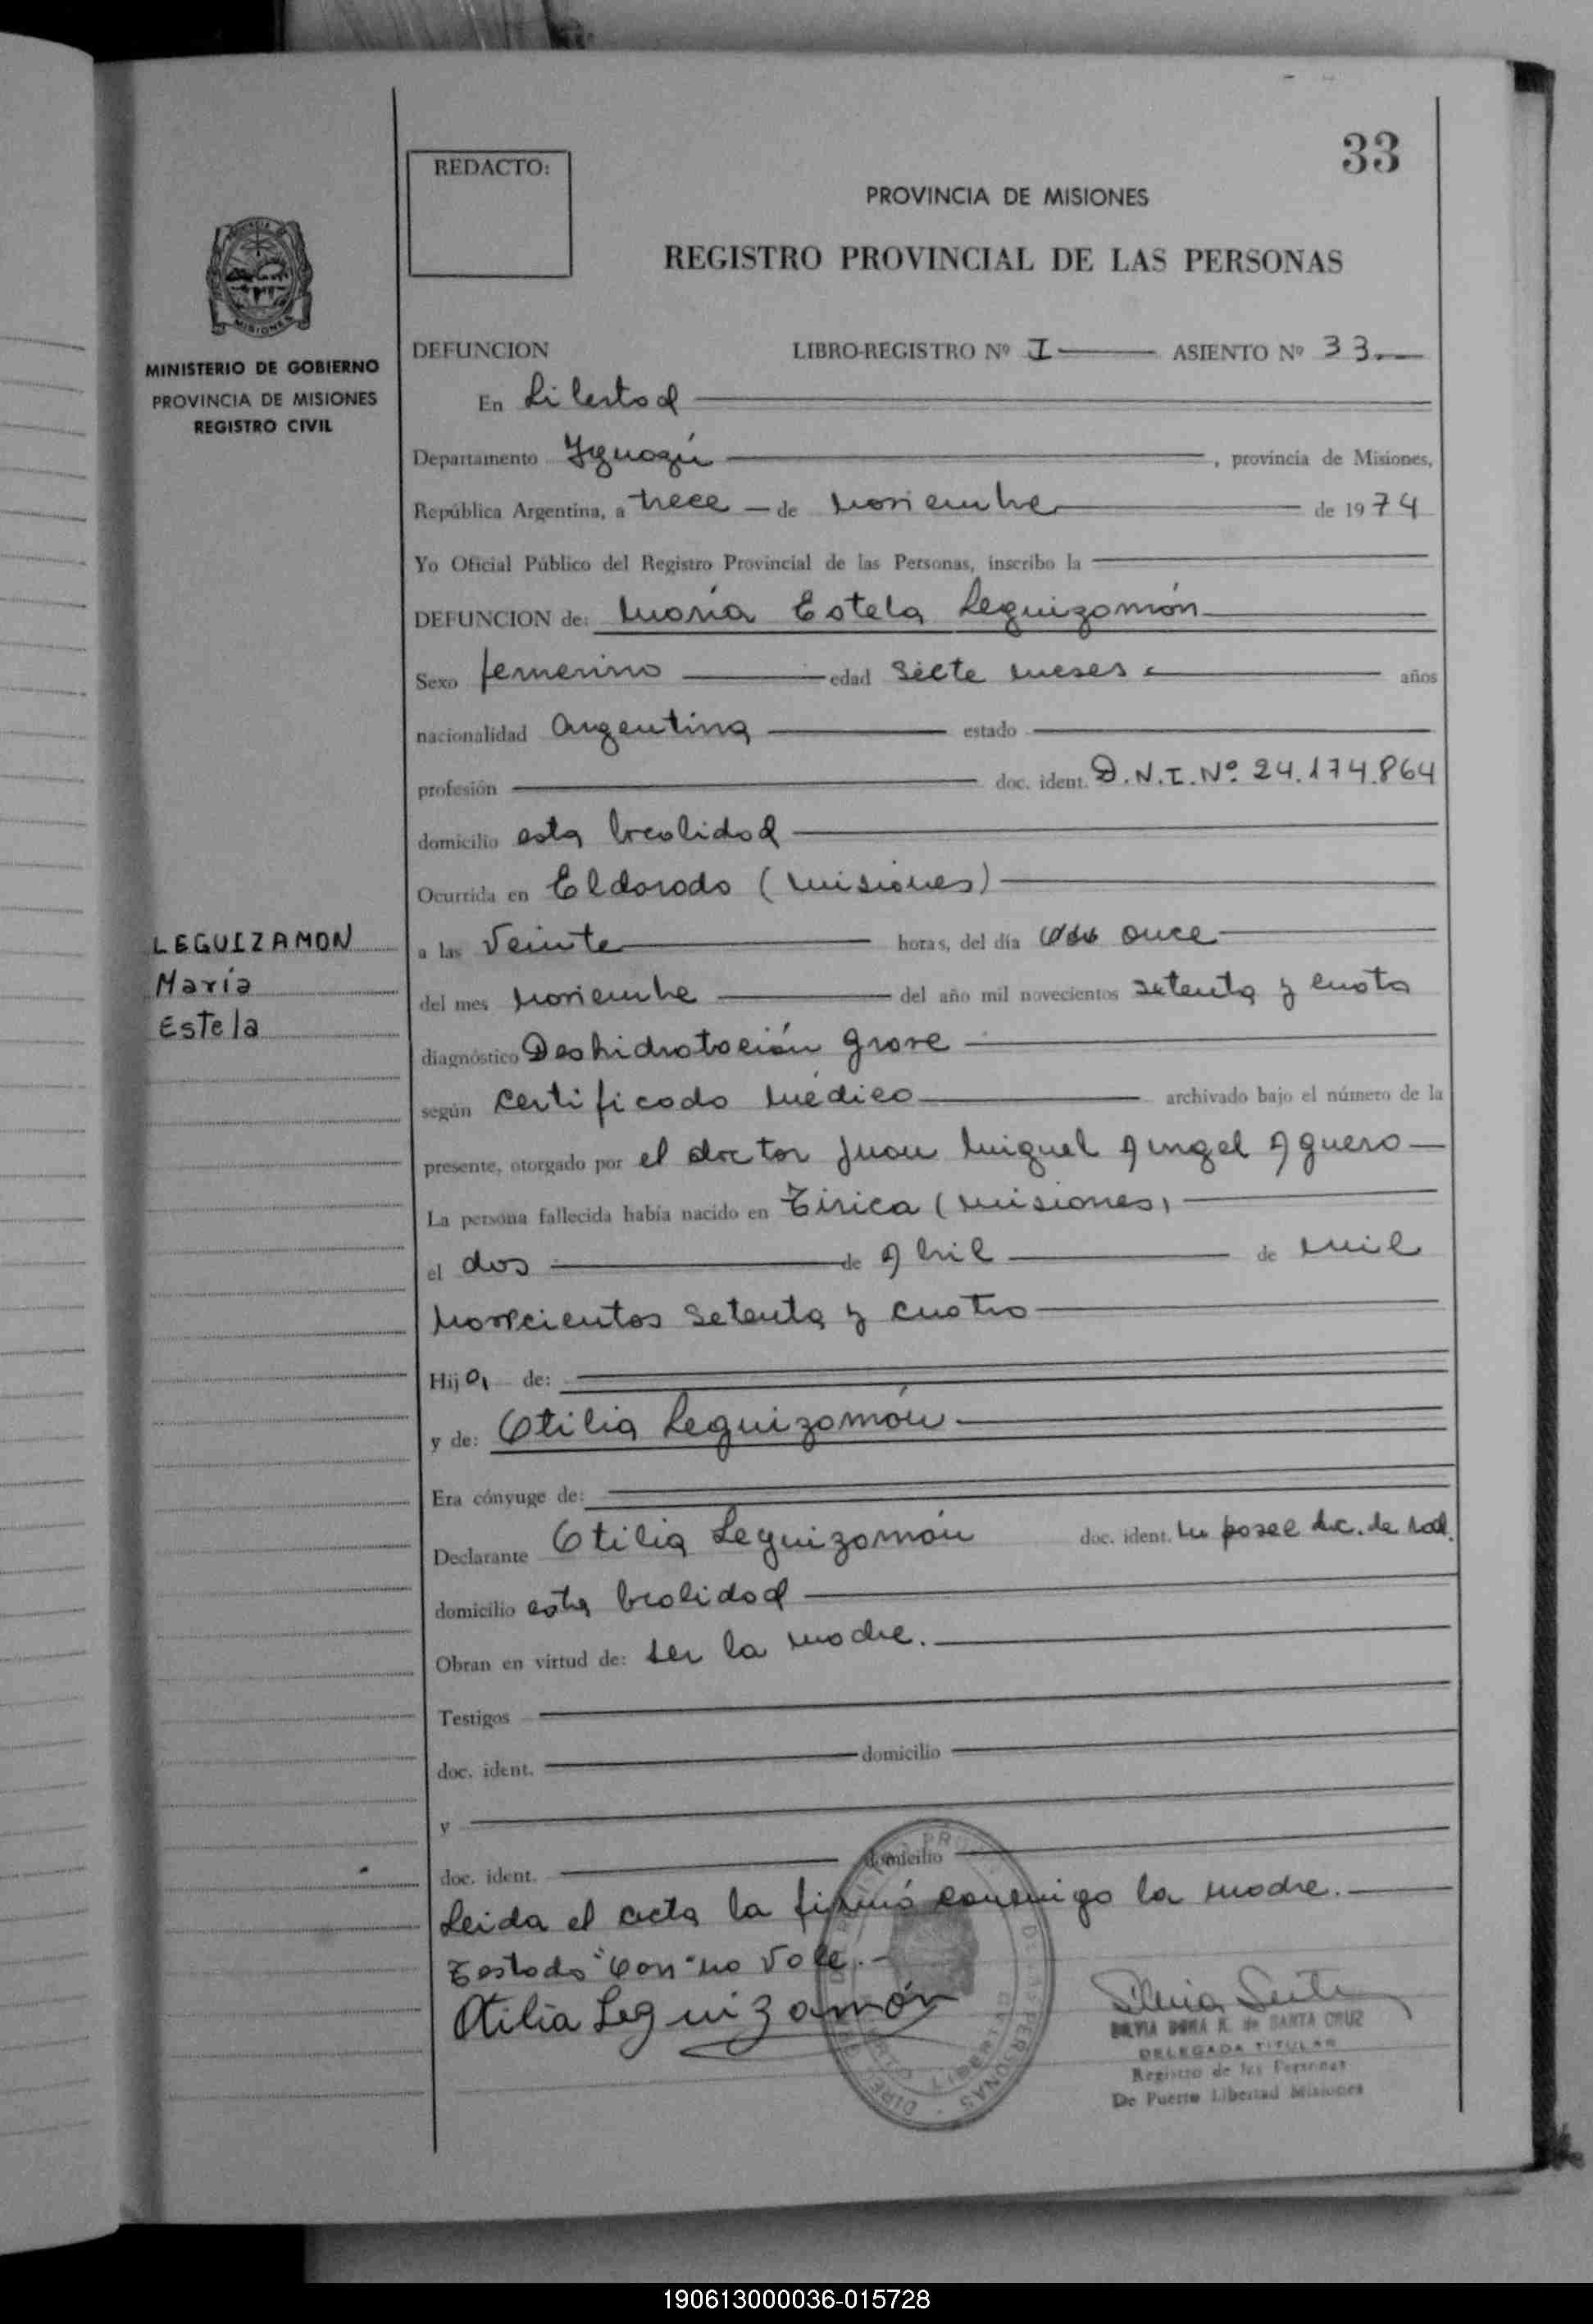 33
REDACTO:
PROVINCIA DE MISIONES
REGISTRO PROVINCIAL DE LAS PERSONAS
MISIONES
MINISTERIO DE GOBIERNO
PROVINCIA DE MISIONES
REGISTRO CIVIL
DEFUNCION LIBRO-REGISTRO Nº I ASIENTO Nº 33.
En Libertad
Departamento Iguazú, provincia de Misiones,
República Argentina, a trece de noviembre de 1974
Yo Oficial Público del Registro Provincial de las Personas, inscribo la
DEFUNCION de: María Estela Leguizamón
Sexo femenino edad siete meses años
nacionalidad Argentina estado
profesión doc. ident. D.N.I. Nº 24.174.864
domicilio esta localidad
Ocurrida en Eldorado (Misiones)
LEGUIZAMON
María
Estela
a las veinte horas, del día once
del mes noviembre del año mil novecientos setenta y cuatro
diagnóstico Deshidratación grave
según certificado médico archivado bajo el número de la
presente, otorgado por el doctor Juan Miguel Angel Aguero
La persona fallecida había nacido en Tirica (Misiones)
el dos de Abril de mil
novecientos setenta y cuatro
Hija de:
y de: Otilia Leguizamón
Era cónyuge de:
Declarante Otilia Leguizamón doc. ident. no posee doc. de
domicilio esta localidad
Obran en virtud de: ser la madre.
Testigos
doc. ident. domicilio
y
doc. ident. domicilio
Leida el acta la firmó conmigo la madre.
Testado " " no vale.
Otilia Leguizamón
SILVIA R. de SANTA CRUZ
DELEGADA TITULAR
Registro de las Personas
De Puerto Libertad Misiones
190613000036-015728